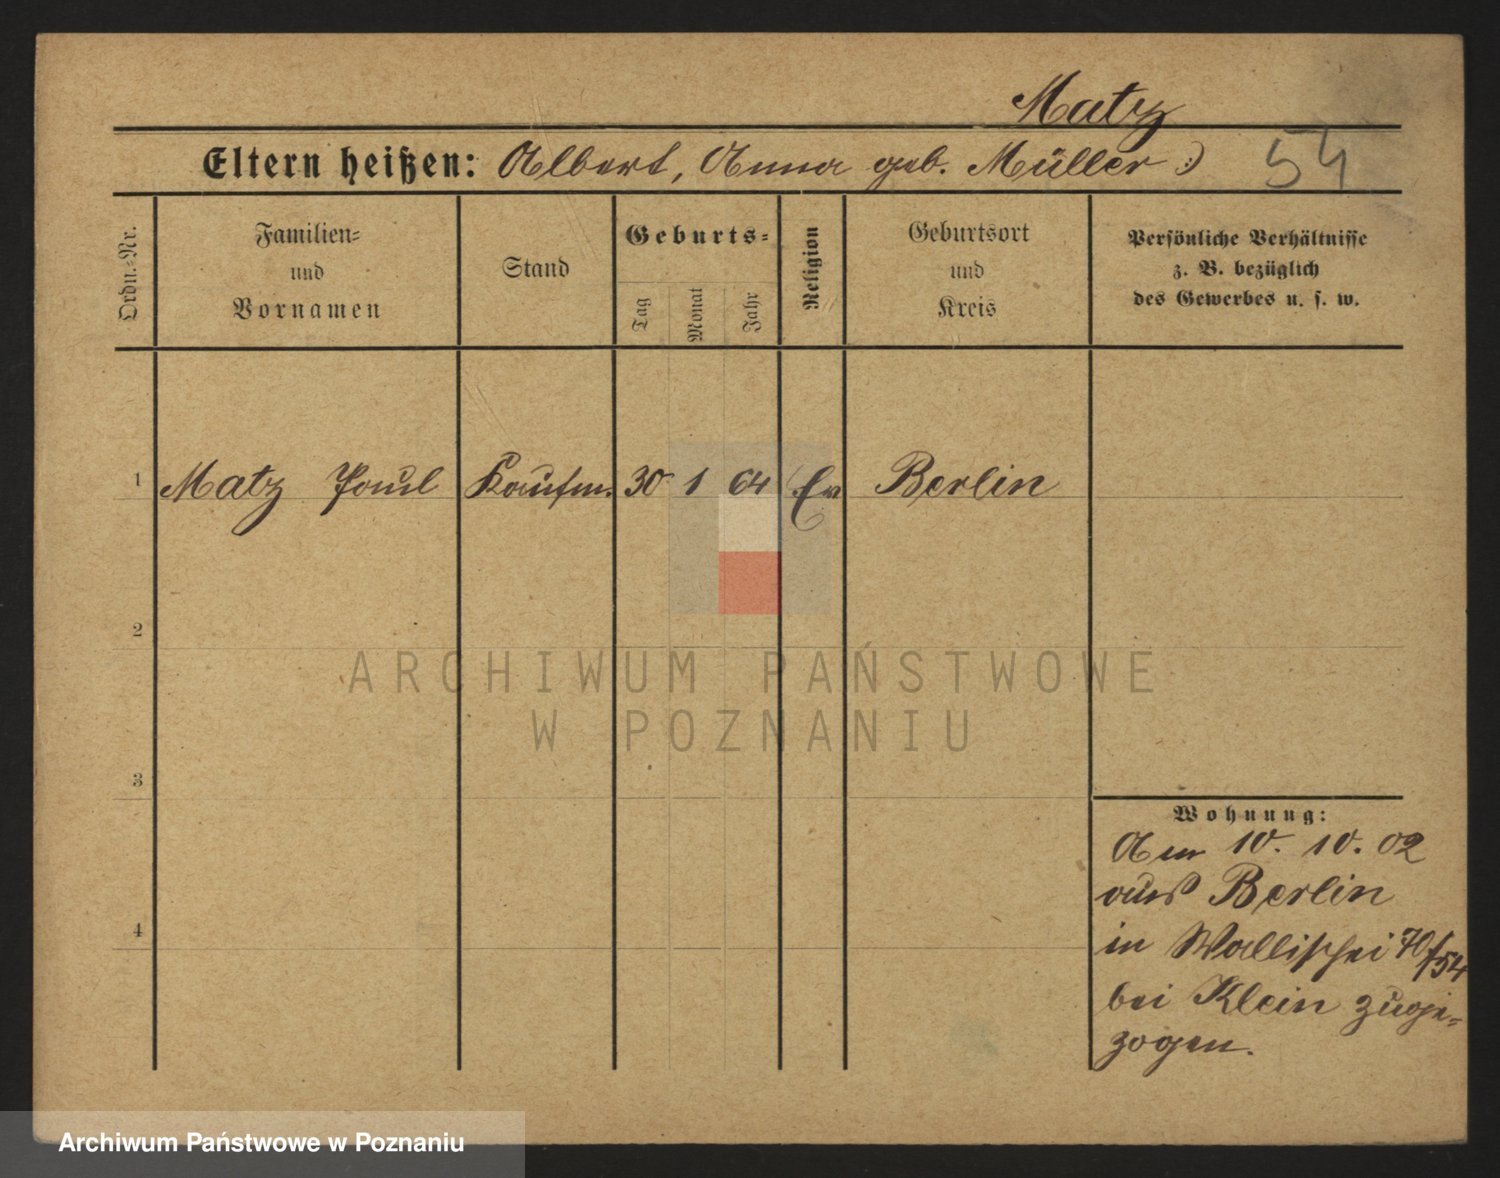 Matz
Eltern heißen: Albert, Anna geb. Müller :)
54
Ordn.-Nr.
Familien-
und
Vornamen
Stand
Geburts-
Tag
Monat
Jahr
Religion
Geburtsort
und
Kreis
Persönliche Verhältnisse
z. B. bezüglich
des Gewerbes u. s. w.
1 Matz Paul Kaufm. 30 1 64 Ev Berlin
2
ARCHIWUM PAŃSTWOWE
W POZNANIU
3
Wohnung:
Am 10. 10. 02
aus Berlin
4
in Wallischei 70/54
bei Klein zuge-
zogen.
Archiwum Państwowe w Poznaniu